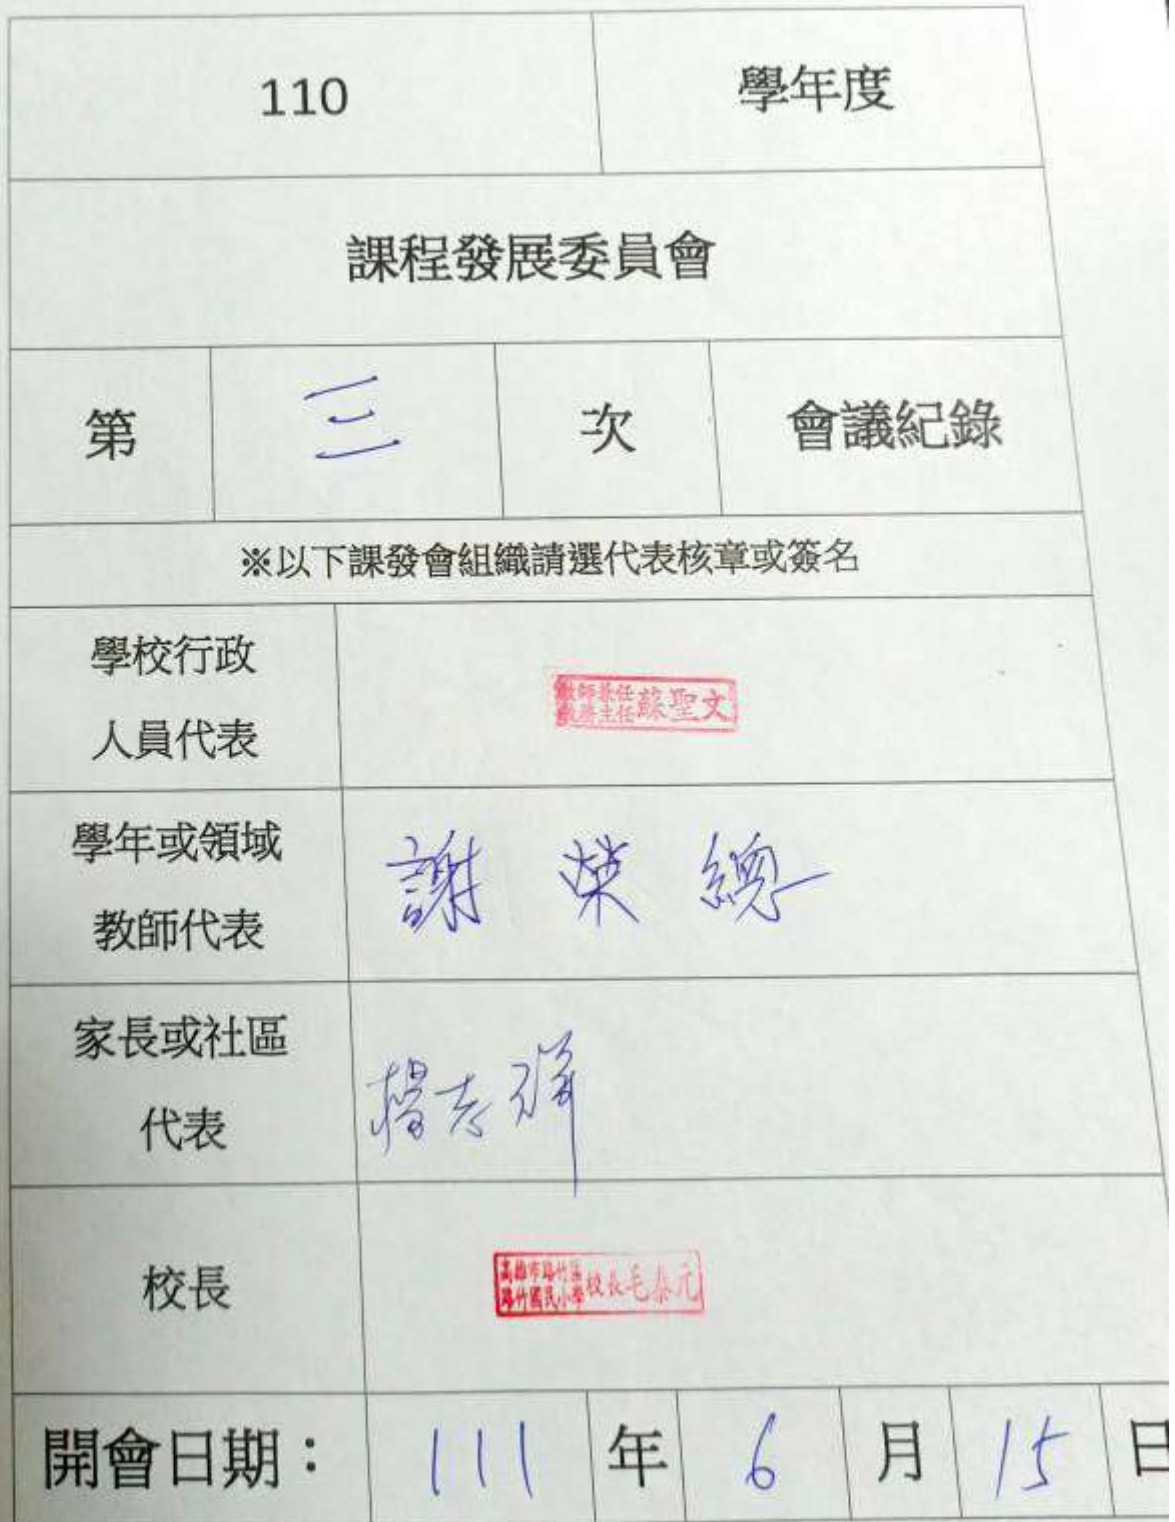 110 學年度
課程發展委員會
第 三 次 會議紀錄
※以下課發會組織請選代表核章或簽名
學校行政
人員代表
教師兼任
教務主任 蘇聖文
學年或領域
教師代表
謝榮總
家長或社區
代表
楊志
校長
高雄市路竹區
路竹國民小學 校長毛泰元
開會日期： 111 年 6 月 15 日